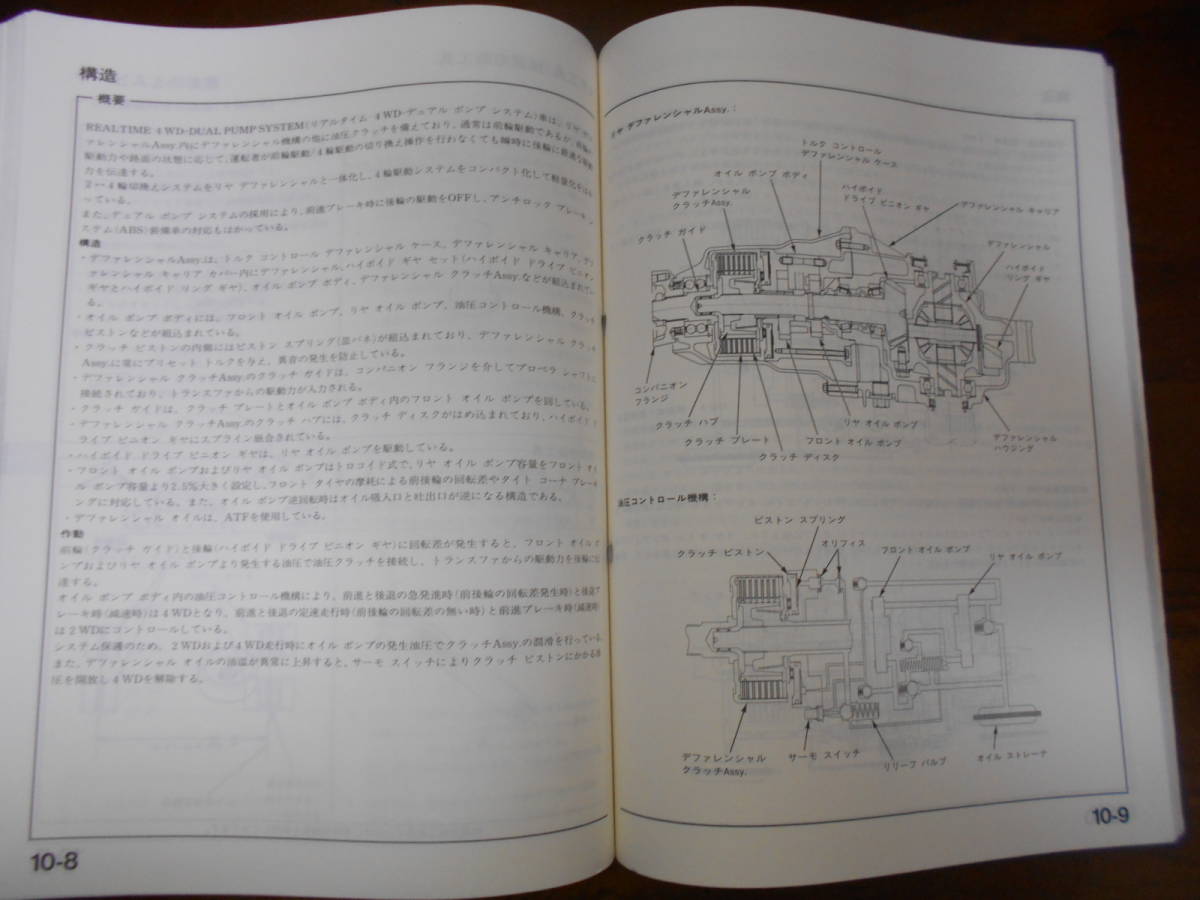 構造
概要
REALTIME 4WD-DUAL PUMP SYSTEM(リアルタイム 4WD-デュアル ポンプ システム)車は、リヤ デフ
ァレンシャルAssy.内にデファレンシャル機構の他に油圧クラッチを備えており、通常は前輪駆動であるが、前輪の
駆動力や路面の状態に応じて、運転者が前輪駆動/4輪駆動の切り換え操作を行わなくても瞬時に後輪に最適な駆動
力を伝達する。
2↔4輪切換えシステムをリヤ デファレンシャルと一体化し、4輪駆動システムをコンパクト化して軽量化をはか
っている。
また、デュアル ポンプ システムの採用により、前進ブレーキ時に後輪の駆動をOFFし、アンチロック ブレーキ シ
ステム(ABS)装備車の対応もはかっている。
構造
・デファレンシャルAssy.は、トルク コントロール デファレンシャル ケース、デファレンシャル キャリア、デフ
ァレンシャル キャリア カバー内にデファレンシャル、ハイポイド ギヤ セット(ハイポイド ドライブ ピニオン
ギヤとハイポイド リング ギヤ)、オイル ポンプ ボディ、デファレンシャル クラッチAssy.などが組込まれてい
る。
・オイル ポンプ ボディには、フロント オイル ポンプ、リヤ オイル ポンプ、油圧コントロール機構、クラッチ
ピストンなどが組込まれている。
・クラッチ ピストンの内側にはピストン スプリング(皿バネ)が組込まれており、デファレンシャル クラッチ
Assy.に常にプリセット トルクを与え、異音の発生を防止している。
・デファレンシャル クラッチAssy.のクラッチ ガイドは、コンパニオン フランジを介してプロペラ シャフトに
接続されており、トランスファからの駆動力が入力される。
・クラッチ ガイドは、クラッチ プレートとオイル ポンプ ボディ内のフロント オイル ポンプを回している。
・デファレンシャル クラッチAssy.のクラッチ ハブには、クラッチ ディスクがはめ込まれており、ハイポイド ド
ライブ ピニオン ギヤにスプライン嵌合されている。
・ハイポイド ドライブ ピニオン ギヤは、リヤ オイル ポンプを駆動している。
・フロント オイル ポンプおよびリヤ オイル ポンプはトロコイド式で、リヤ オイル ポンプ容量をフロント オイ
ル ポンプ容量より2.5%大きく設定し、フロント タイヤの摩耗による前後輪の回転差やタイト コーナ ブレーキ
ングに対応している。また、オイル ポンプ逆回転時はオイル吸入口と吐出口が逆になる構造である。
・デファレンシャル オイルは、ATFを使用している。
作動
前輪(クラッチ ガイド)と後輪(ハイポイド ドライブ ピニオン ギヤ)に回転差が発生すると、フロント オイル ポ
ンプおよびリヤ オイル ポンプより発生する油圧で油圧クラッチを接続し、トランスファからの駆動力を後輪に伝
達する。
オイル ポンプ ボディ内の油圧コントロール機構により、前進と後退の急発進時(前後輪の回転差発生時)と後退ブ
レーキ時(減速時)は4WDとなり、前進と後退の定速走行時(前後輪の回転差の無い時)と前進ブレーキ時(減速時)
は2WDにコントロールしている。
システム保護のため、2WDおよび4WD走行時にオイル ポンプの発生油圧でクラッチAssy.の潤滑を行っている。
また、デファレンシャル オイルの油温が異常に上昇すると、サーモ スイッチによりクラッチ ピストンにかかる油
圧を開放し4WDを解除する。
10-8
リヤ デファレンシャルAssy.:
トルク コントロール
デファレンシャル ケース
オイル ポンプ ボディ
ハイポイド
ドライブ ピニオン ギヤ
デファレンシャル
クラッチAssy.
デファレンシャル キャリア
クラッチ ガイド
デファレンシャル
ハイポイド
リング ギヤ
コンパニオン
フランジ
クラッチ ハブ
リヤ オイル ポンプ
クラッチ プレート
フロント オイル ポンプ
デファレンシャル
ハウジング
クラッチ ディスク
油圧コントロール機構:
ピストン スプリング
オリフィス
クラッチ ピストン
フロント オイル ポンプ
リヤ オイル ポンプ
デファレンシャル
クラッチAssy.
サーモ スイッチ
リリーフ バルブ
オイル ストレーナ
10-9